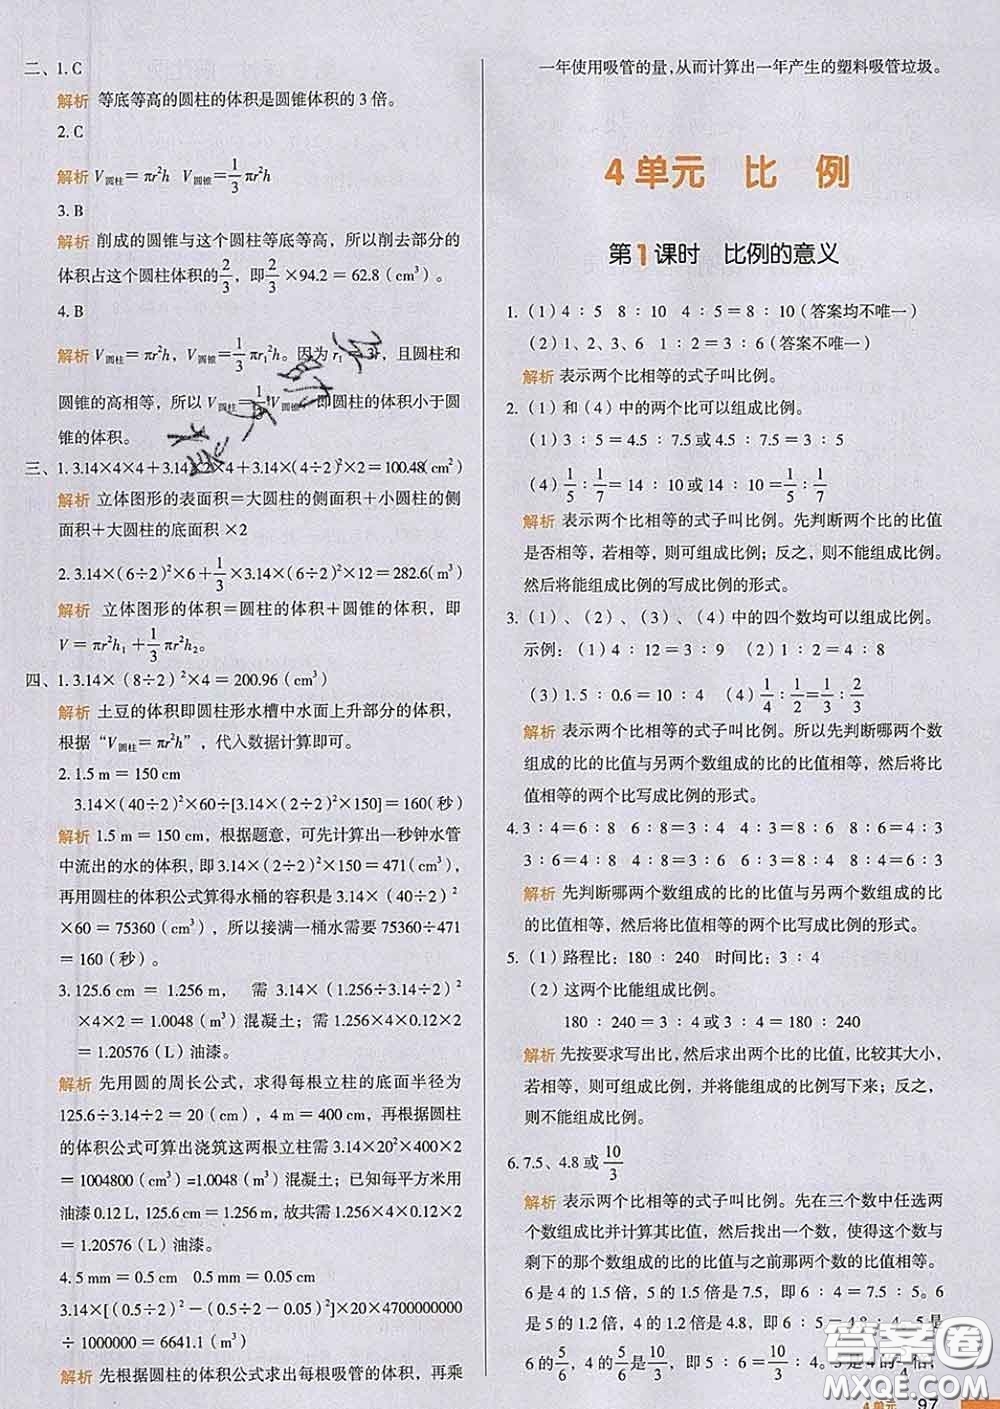 二、1. C
解析 等底等高的圆柱的体积是圆锥体积的 3 倍。
2. C
解析 V圆柱＝πr²h V圆锥＝1/3πr²h
3. B
解析 削成的圆锥与这个圆柱等底等高，所以削去部分的
体积占这个圆柱体积的2/3，即2/3×94.2＝62.8(cm³)
4. B
解析 V圆柱＝πr²h，V圆锥＝1/3πr₁²h。因为 r₁ 且圆柱和
圆锥的高相等，所以 V圆柱＝ V圆锥 即圆柱的体积小于圆
锥的体积。
三、1. 3.14×4×4＋3.14×2×4＋3.14×(4÷2)²×2＝100.48(cm²)
解析 立体图形的表面积＝大圆柱的侧面积＋小圆柱的侧
面积＋大圆柱的底面积 ×2
2. 3.14×(6÷2)²×6＋1/3×3.14×(6÷2)²×12＝282.6(m³)
解析 立体图形的体积＝圆柱的体积＋圆锥的体积，即
V＝πr²h₁＋1/3πr²h₂。
四、1. 3.14×(8÷2)²×4＝200.96(cm³)
解析 土豆的体积即圆柱形水槽中水面上升部分的体积，
根据“V圆柱＝πr²h”，代入数据计算即可。
2. 1.5 m＝150 cm
3.14×(40÷2)²×60÷[3.14×(2÷2)²×150]＝160(秒)
解析 1.5 m＝150 cm，根据题意，可先计算出一秒钟水管
中流出的水的体积，即 3.14×(2÷2)²×150＝471(cm³)，
再用圆柱的体积公式算得水桶的容积是 3.14×(40÷2)²
×60＝75360(cm³)，所以接满一桶水需要 75360÷471
＝160(秒)。
3. 125.6 cm＝1.256 m， 需 3.14×(1.256÷3.14÷2)²
×4×2＝1.0048(m³)混凝土；需 1.256×4×0.12×2
＝1.20576(L)油漆。
解析 先用圆的周长公式，求得每根立柱的底面半径为
125.6÷3.14÷2＝20(cm)，4 m＝400 cm，再根据圆柱
的体积公式可算出浇筑这两根立柱需 3.14×20²×400×2
＝1004800(cm³)=1.0048(m³)混凝土；已知每平方米用
油漆 0.12 L，125.6 cm＝1.256 m，故共需 1.256×4×0.12×2
＝1.20576(L)油漆。
4. 5 mm＝0.5 cm 0.5 mm＝0.05 cm
3.14×[(0.5÷2)²－(0.5÷2－0.05)²]×20×4700000000
÷1000000＝6641.1(m³)
解析 先根据圆柱的体积公式求出每根吸管的体积，再乘
一年使用吸管的量，从而计算出一年产生的塑料吸管垃圾。
4 单元 比 例
第 1 课时 比例的意义
1.（1）4∶5 8∶10 4∶5＝8∶10（答案均不唯一）
（2）1、2、3、6 1∶2＝3∶6（答案不唯一）
解析 表示两个比相等的式子叫比例。
2.（1）和（4）中的两个比可以组成比例。
（1）3∶5＝4.5∶7.5 或 4.5∶7.5＝3∶5
（4）1/5∶1/7＝14∶10 或 14∶10＝1/5∶1/7
解析 表示两个比相等的式子叫比例。先判断两个比的比值
是否相等，若相等，则可组成比例；反之，则不能组成比例。
然后将能组成比例的写成比例的形式。
3.（1）、（2）、（3）、（4）中的四个数均可以组成比例。
示例：（1）4∶12＝3∶9 （2）1∶2＝4∶8
（3）1.5∶0.6＝10∶4 （4）1/4∶1/2＝1/3∶2/3
解析 表示两个比相等的式子叫比例。所以先判断哪两个数
组成的比的比值与另两个数组成的比的比值相等，然后将
相等的两个比写成比例的形式。
4. 3∶4＝6∶8 6∶8＝3∶4 4∶3＝8∶6 8∶6＝4∶3
3∶6＝4∶8 4∶8＝3∶6 6∶3＝8∶4 8∶4＝6∶3
解析 先判断哪两个数组成的比的比值与另两个数组成的比
的比值相等，然后将相等的两个比写成比例的形式。
5.（1）路程比：180∶240 时间比：3∶4
（2）这两个比能组成比例。
180∶240＝3∶4 或 3∶4＝180∶240
解析 先按要求写出比，然后求出两个比的比值，比较其大小，
若相等，则可组成比例，并将能组成的比例写下来；反之，
则不能组成比例。
6. 7.5、4.8 或10/3
解析 表示两个比相等的式子叫比例。先在三个数中任选两
个数组成比并计算其比值，然后找出一个数，使得这个数与
剩下的那个数组成的比的比值与之前那两个数的比值相等。
6 是 4 的 1.5 倍，7.5 是 5 的 1.5 倍，即 6∶4＝7.5∶5。6
是 5 的 1.2 倍，4.8 是 4 的 1.2 倍，即 6∶5＝4.8∶4。5 是
6 的5/6，4的5/6是10/3，即 5∶6＝10/3∶4。
答案圈
MXQE.COM
4 单元 97